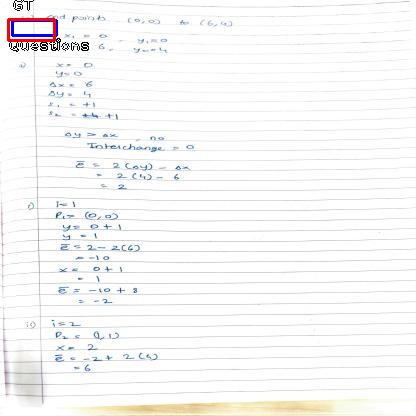 GT
end points (0,0) to (6,4)
x₁ = 0 y₁=0
Questions 6, y₂=4
x = 0
y = 0
Δx = 6
Δy = 4
s₁ = +1
s₂ = +1
Δy > Δx no
Interchange = 0
e̅ = 2(Δy) - Δx
= 2(4) - 6
= 2
i) i=1
P₁ = (0,0)
y = 0 + 1
y = 1
e̅ = 2 - 2(6)
= -10
x = 0 + 1
= 1
e̅ = -10 + 8
= -2
ii) i=2
P₂ = (1,1)
x = 2
e̅ = -2 + 2(4)
= 6